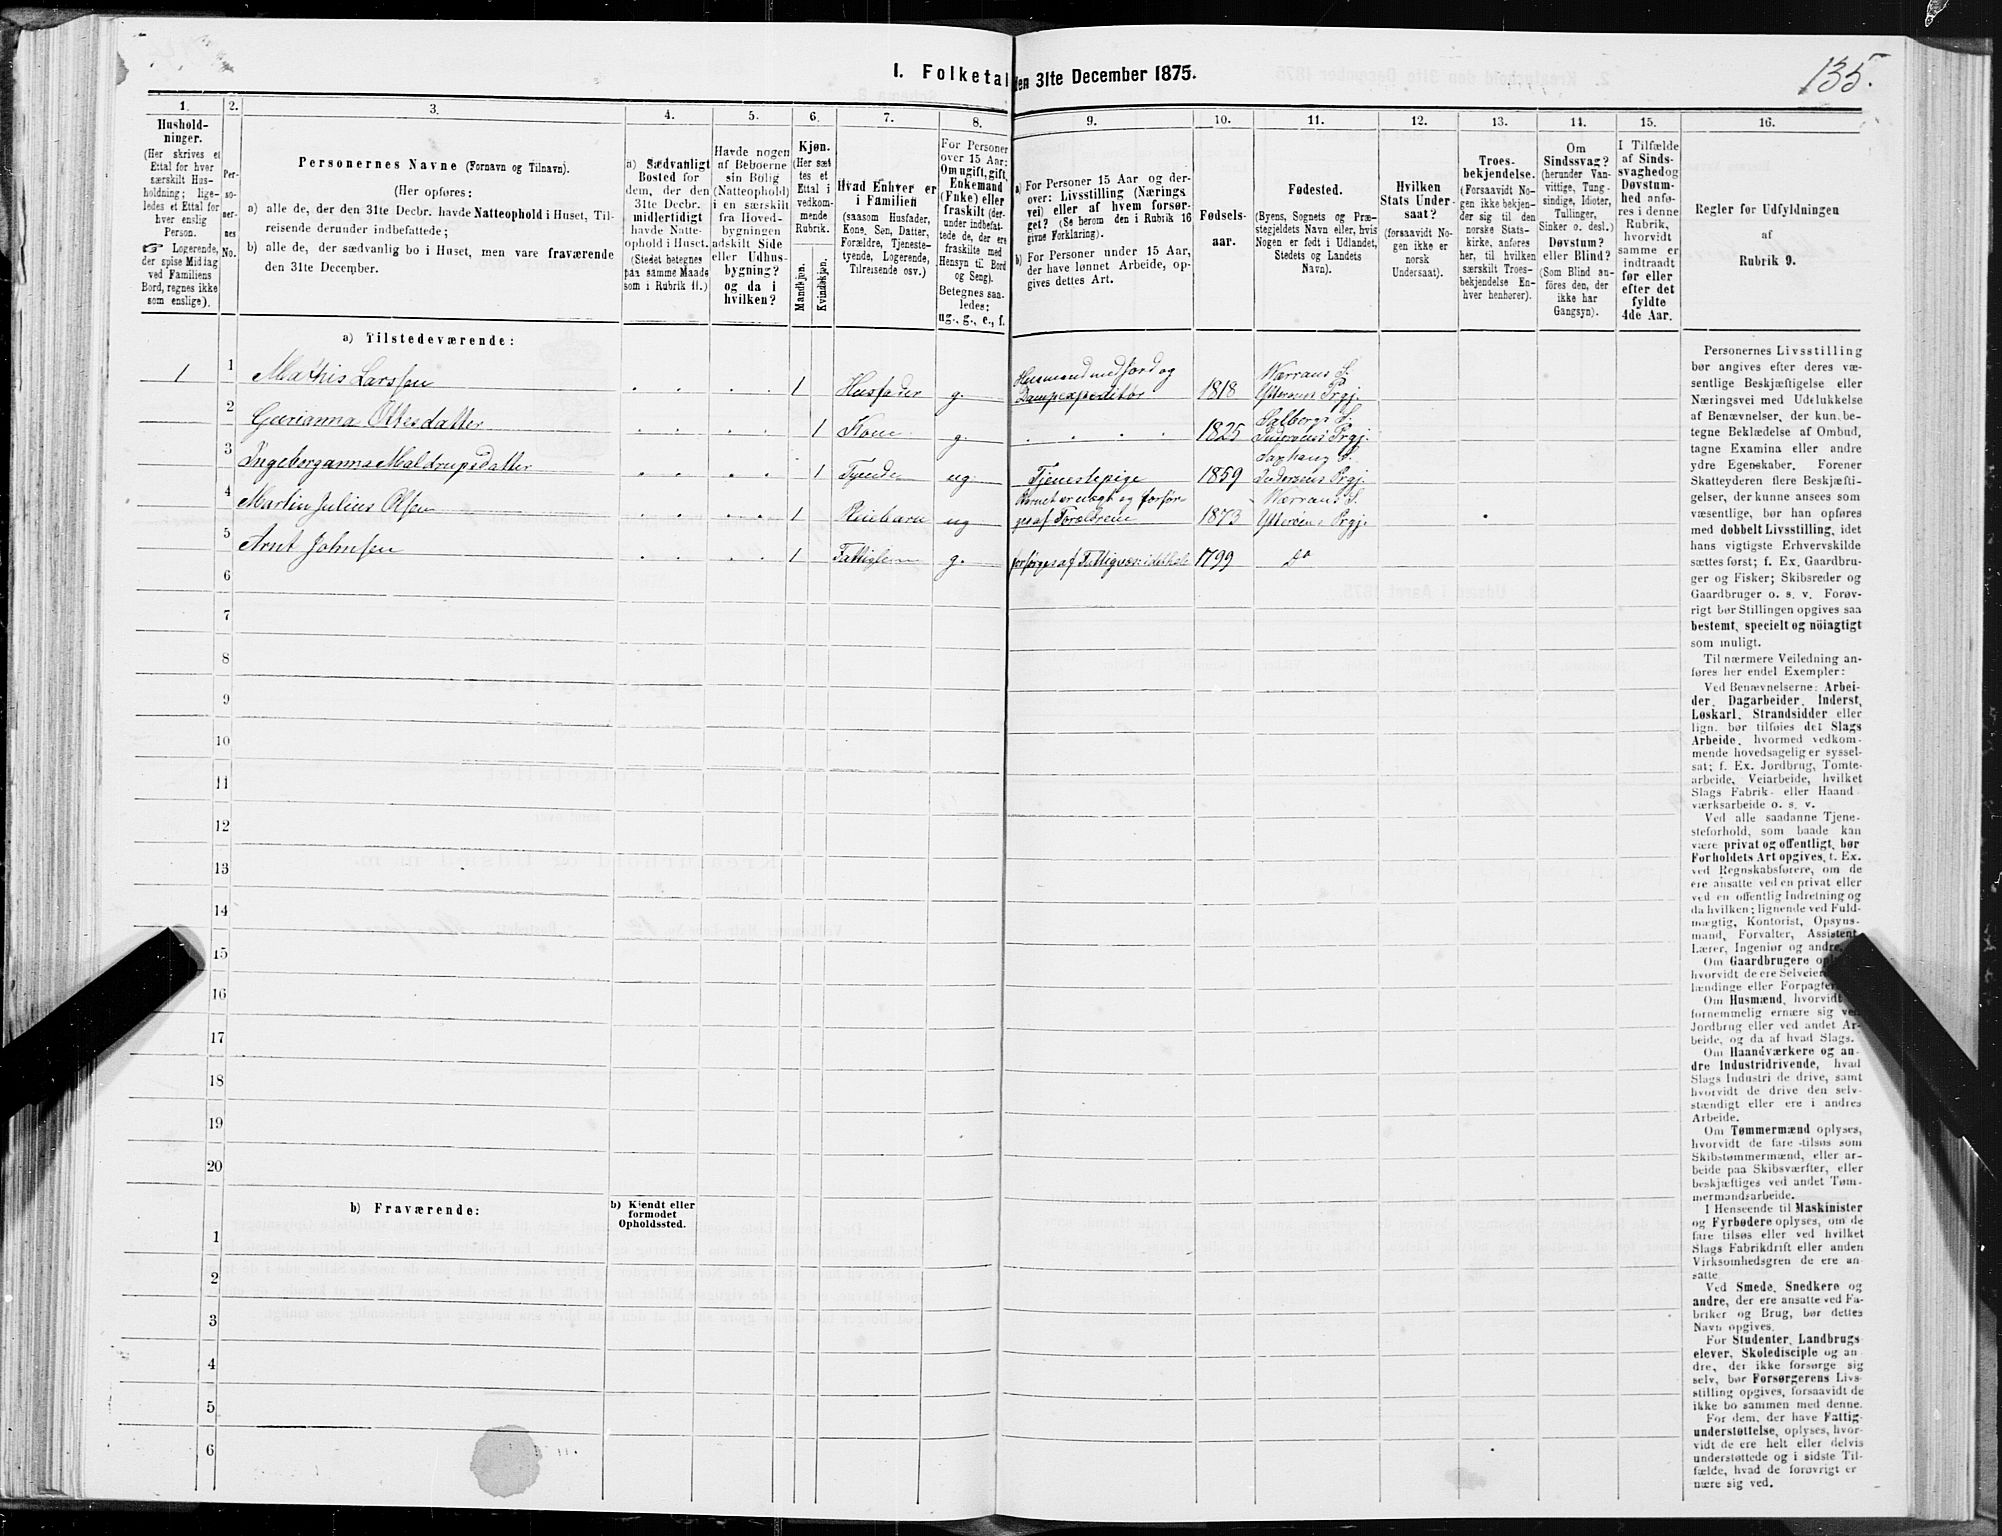 135.
I. Folketal den 31te December 1875.
1. 2. 3. 4. 5. 6. 7. 8. 9. 10. 11. 12. 13. 14. 15. 16.
Hushold-
ninger.
(Her skrives et
Ettal for hver
særskilt Hus-
holdning; lige-
ledes et Ettal for
hver enslig
Person.
☞ Logerende,
der spise Middag
ved Familiens
Bord, regnes ikke
som enslige).
Per-
so-
ner-
nes
No.
Personernes Navne (Fornavn og Tilnavn).
(Her opføres:
a) alle de, der den 31te Decbr. havde Natteophold i Huset, Til-
reisende derunder indbefattede;
b) alle de, der sædvanlig bo i Huset, men vare fraværende
den 31te December.
a) Sædvanligt
Bosted for
dem, der den
31te Decbr.
midlertidigt
havde Natte-
ophold i Huset.
(Stedet betegnes
paa samme Maade
som i Rubrik 11.)
Havde nogen
af Beboerne
sin Bolig
(Natteophold)
i en særskilt
fra Hoved-
bygningen
adskilt Side
eller Udhus-
bygning?
og da i
hvilken?
Kjøn.
(Her sæt
tes et
Ettal i
vedkom-
mende
Rubrik.
Mandkjøn.
Kvindekjøn.
Hvad Enhver er
i Familien
(saasom Husfader,
Kone, Søn, Datter,
Forældre, Tjeneste-
tyende, Logerende,
Tilreisende osv.)
For Personer
over 15 Aar:
Om ugift, gift,
Enkemand
(Enke) eller
fraskilt (der-
under indbefat-
tede de, der ere
fraskilte med
Hensyn til Bord
og Seng).
Betegnes saa-
ledes:
ug., g., e., f.
a) For Personer 15 Aar og der-
over: Livsstilling (Nærings
vei) eller af hvem forsør-
get? (Se herom den i Rubrik 16
givne Forklaring).
b) For Personer under 15 Aar,
der have lønnet Arbeide, op-
gives dettes Art.
Fødsels-
aar.
Fødested.
(Byens, Sognets og Præ-
stegjeldets Navn eller, hvis
Nogen er født i Udlandet,
Stedets og Landets
Navn).
Hvilken
Stats Under-
saat?
(forsaavidt No-
gen ikke er
norsk
Undersaat).
Troes-
bekjendelse.
(Forsaavidt No-
gen ikke bekjen-
der sig til den
norske Stats-
kirke, anføres
her, til hvilken
særskilt Troes-
bekjendelse En-
hver henhører).
Om
Sindssvag?
(herunder Van-
vittige, Tung-
sindige, Idioter,
Tullinger,
Sinker o. desl.)
Døvstum?
eller Blind?
(Som Blind an-
føres den, der
ikke har
Gangsyn).
I Tilfælde
af Sinds-
svaghed og
Døvstum-
hed anfø-
res i denne
Rubrik,
hvorvidt
samme er
indtraadt
før eller
efter det
fyldte
4de Aar.
Regler for Udfyldningen
af
Rubrik 9.
a) Tilstedeværende:
1 1 Mathis Larssen 1 Husfader g. Husmand med Jord og Dampexpeditør 1818 Værrans S. Ytterøens Prgj.
2 Gurianna Ottesdatter 1 Kone g. 1825 Salbergs S. Inderøens Prgj.
3 Ingeborganna Maldrupsdatter 1 Tyende ug Tjenestepige 1859 Saxhaug S. Inderøens Prgj.
4 Martin Julius Olsen 1 Pleiebarn ug Barnet er uægt og forsør-
ges af Forældrene 1873 Værrans S. Ytterøens Prgj.
5 Arnt Johnsen 1 Fattiglem g. forsørges af Fattigvæs: i det hele 1799 do
6
7
8
9
10
11
12
13
14
15
16
17
18
19
20
b) Fraværende:
b) Kjendt eller
formodet
Opholdssted.
1
2
3
4
5
6
Personernes Livsstilling
bør angives efter deres væ-
sentlige Beskjæftigelse eller
Næringsvei med Udelukkelse
af Benævnelser, der kun be-
tegne Beklædelse af Ombud,
tagne Examina eller andre
ydre Egenskaber. Forener
Skatteyderen flere Beskjæfti-
gelser, der kunne ansees som
væsentlige, bør han opføres
med dobbelt Livsstilling, idet
hans vigtigste Erhvervskilde
sættes først; f. Ex. Gaardbru-
ger og Fisker; Skibsreder og
Gaardbruger o. s. v. Forøv-
rigt bør Stillingen opgives saa
bestemt, specielt og nöiagtigt
som muligt.
Til nærmere Veiledning an-
føres her endel Exempler:
Ved Benævnelserne: Arbei-
der, Dagarbeider, Inderst,
Løskarl, Strandsidder eller
lign. bør tilføies det Slags
Arbeide, hvormed vedkom-
mende hovedsagelig er syssel-
sat; f. Ex. Jordbrug, Tomte-
arbeide, Veiarbeide, hvilket
Slags Fabrik- eller Haand-
værksarbeide o. s. v.
Ved alle saadanne Tjene-
steforhold, som baade kan
være privat og offentligt, bør
Forholdets Art opgives, f. Ex.
ved Regnskabsførere, om de
ere ansatte ved en privat eller
ved en offentlig Indretning og
da hvilken; lignende ved Fuld-
mægtig, Kontorist, Opsyns-
mand, Forvalter, Assistent,
Lærer, Ingeniør og andre.
Om Gaardbrugere
hvorvidt de ere Selveiere
lændinge eller Forpagtere
Om Husmænd, hvorvidt
fornemmelig ernære sig ved
Jordbrug eller ved andet Ar-
beide, og da af hvad Slags.
Om Haandværkere og an-
dre Industridrivende, hvad
Slags Industri de drive, samt
hvorvidt de drive den selv-
stændigt eller ere i andres
Arbeide.
Om Tømmermænd oplyses,
hvorvidt de fare tilsøs som
Skibstømmermænd, eller ar-
beide paa Skibsværfter, eller
beskjæftiges ved andet Tøm-
mermandsarbeide.
I Henseende til Maskinister
og Fyrbødere oplyses, om de
fare tilsøs eller ved hvilket
Slags Fabrikdrift eller anden
Virksomhedsgren de ere an-
satte
Ved Smede, Snedkere og
andre, der ere ansatte ved Fa-
briker og Brug, bør dettes
Navn opgives.
For Studenter, Landbrugs
elever, Skoledisciple og an-
dre, der ikke forsørge sig
selv, bør Forsørgerens Livs-
stilling opgives, forsaavidt de
ikke bo sammen med denne.
For dem, der have Fattig-
understøttelse, oplyses, hvor-
vidt de ere helt eller delvis
understøttede og i sidste Til-
fælde, hvad de forøvrigt er
nære sig ved.